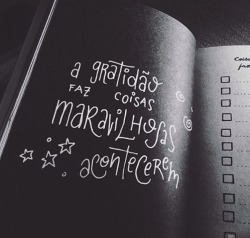 a gratidão
FAZ COISAS
MARAVILHOSAS
acontecerem